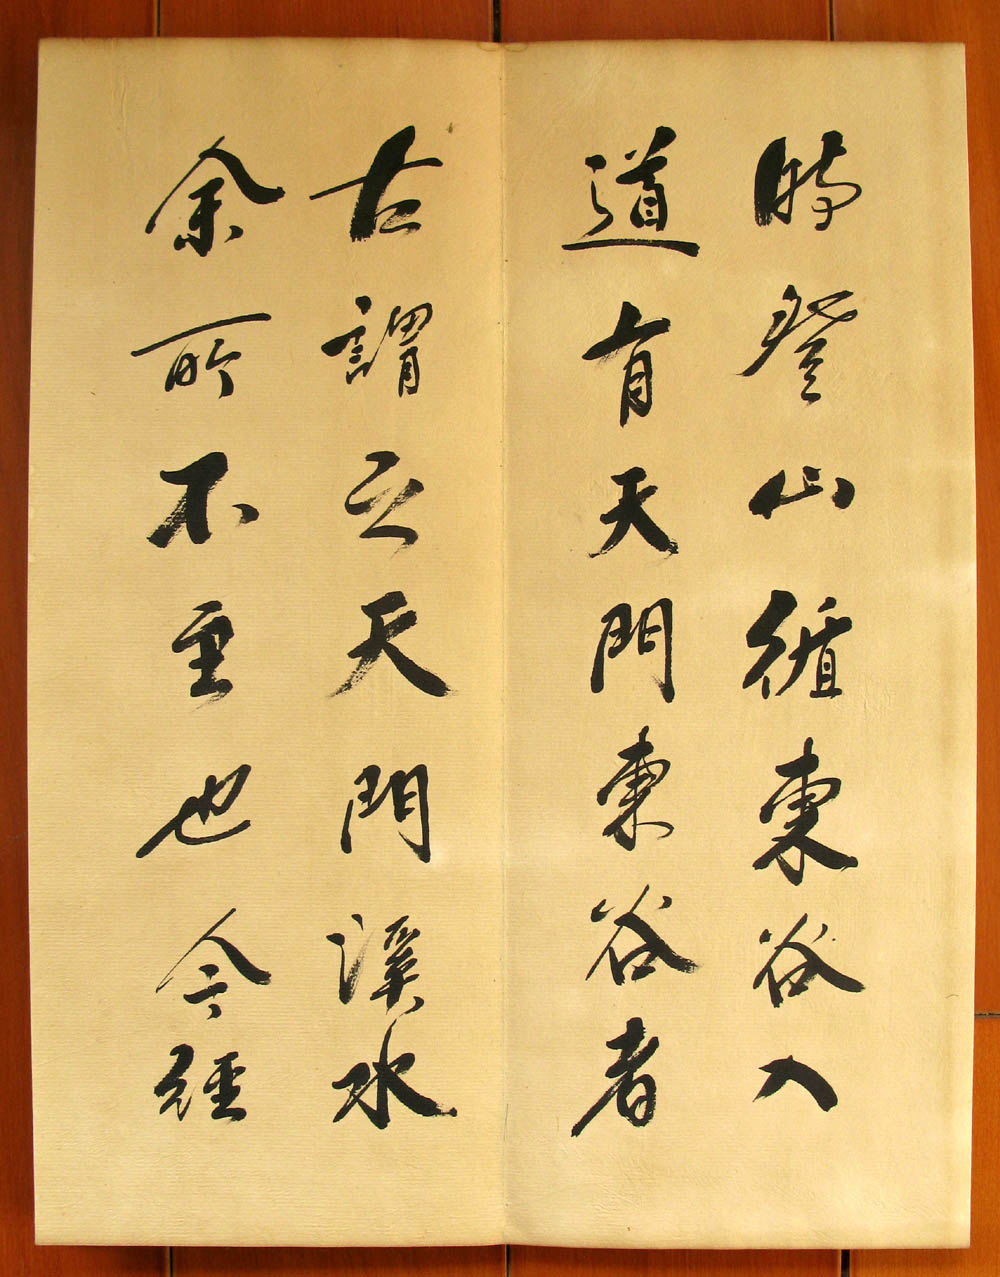 時登山循東谷入
道有天門東谷者
古謂之天門溪水
余所不至也今經